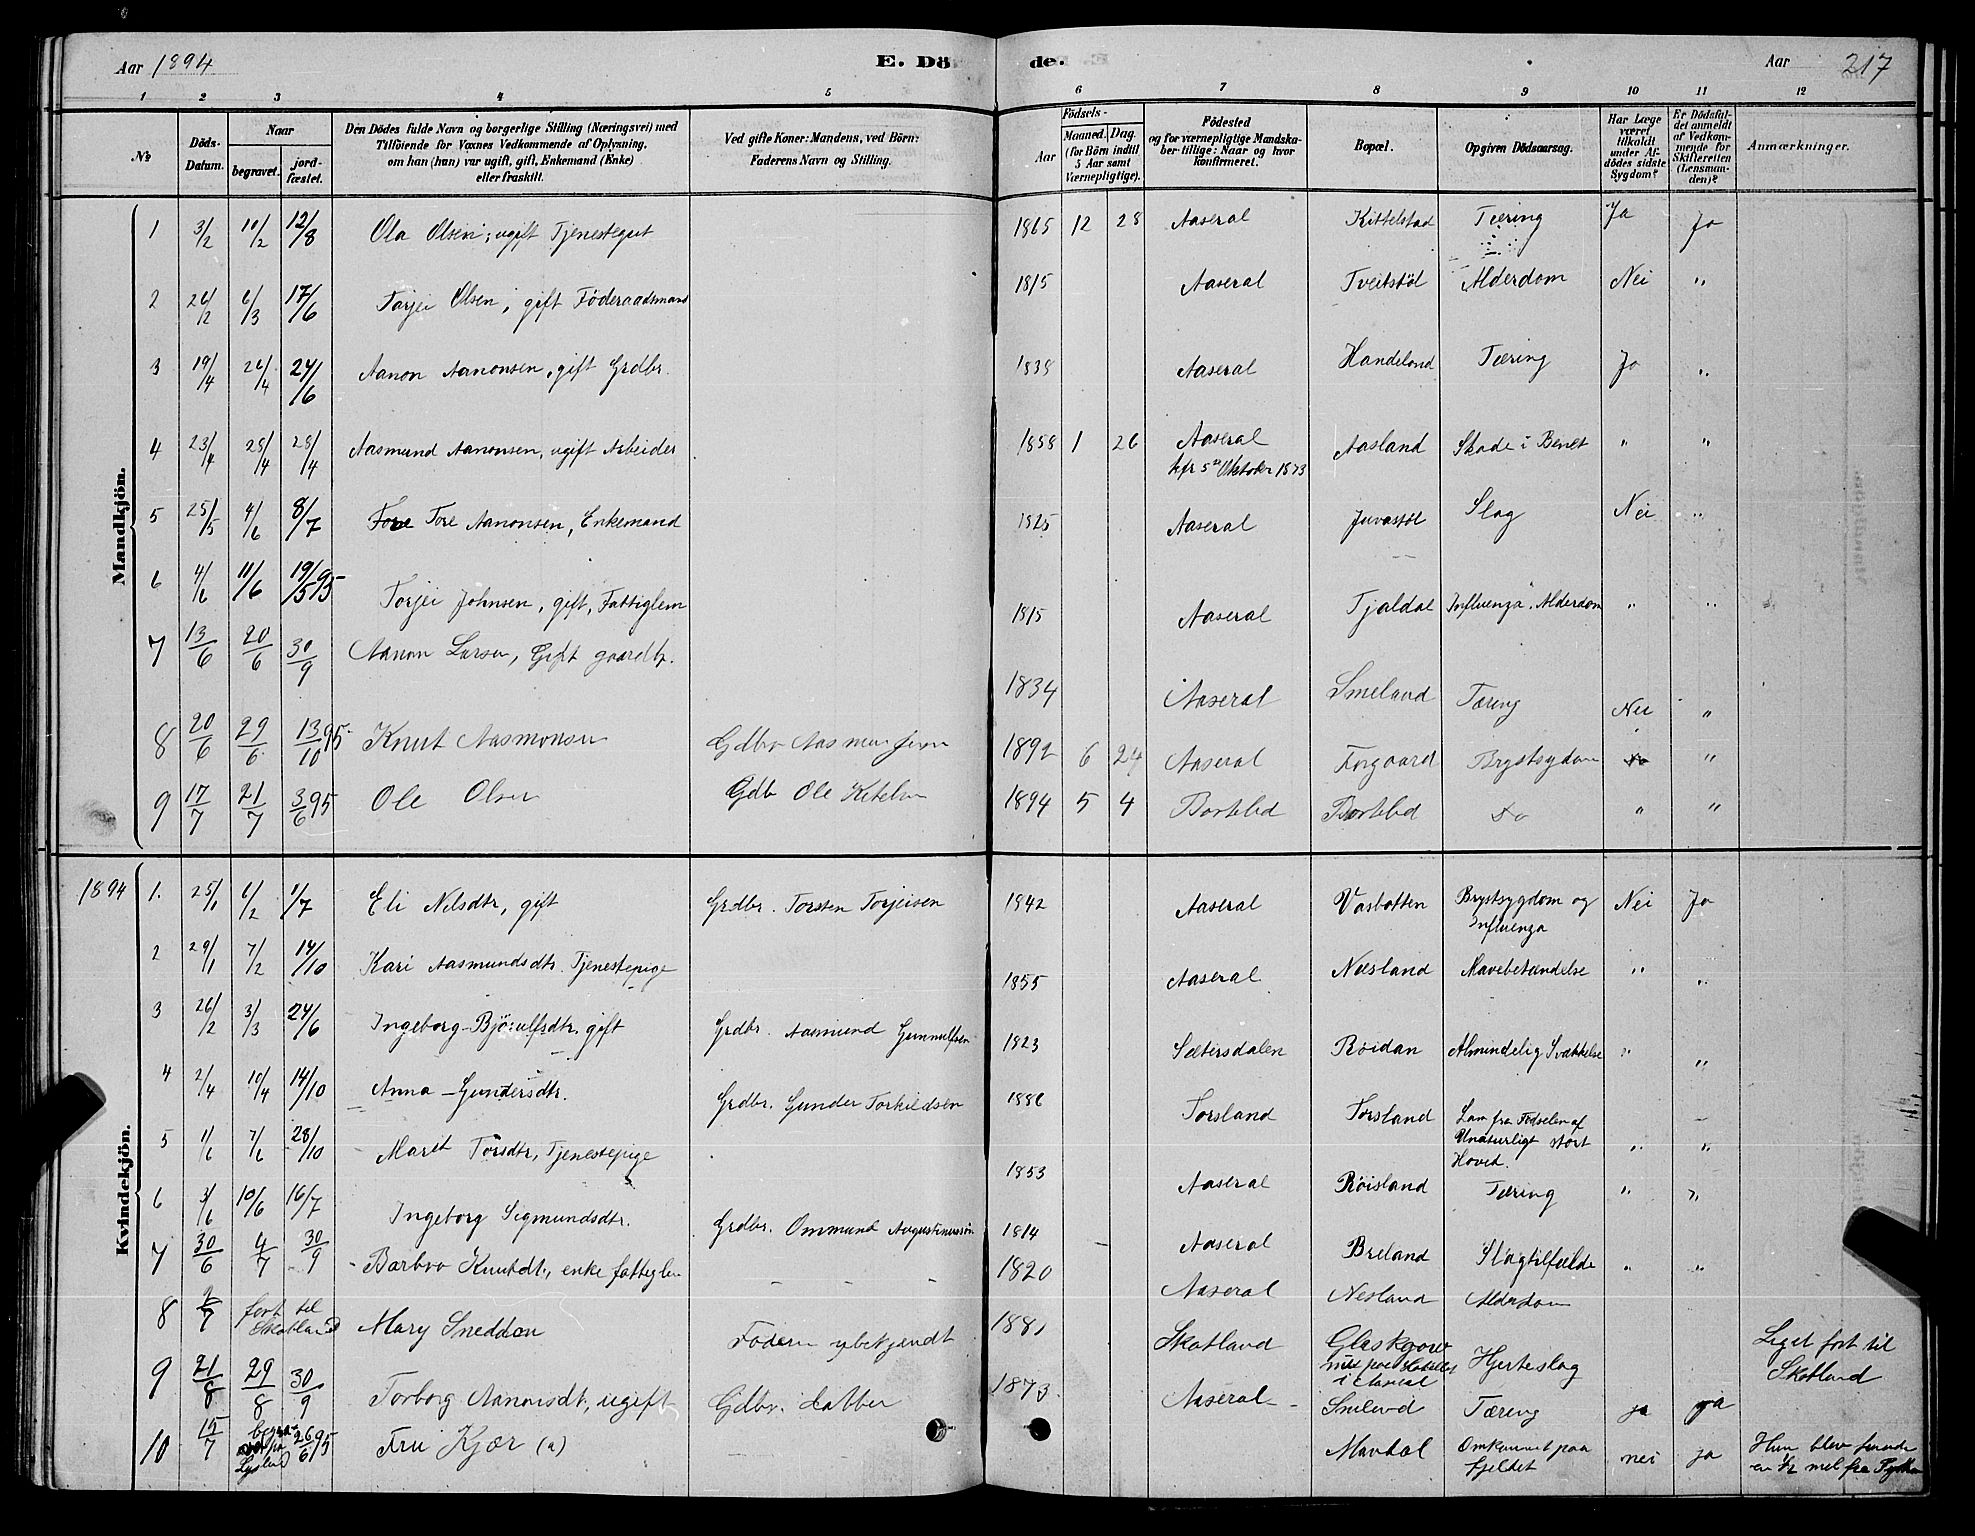 Aar 1894
E. Dö de.
Aar 217
1 2 3 4 5 6 7 8 9 10 11 12
No
Döds-Datum.
Naar
begravet.
jord-fæstet.
Den Dödes fulde Navn og borgerlige Stilling (Næringsvei) med
Tilföiende for Voxnes Vedkommende af Oplysning,
om han (hun) var ugift, gift, Enkemand (Enke)
eller fraskilt.
Ved gifte Koner: Mandens, ved Börn:
Faderens Navn og Stilling.
Födsels-
Aar
Maaned. Dag.
(for Börn indtil
5 Aar samt
Værnepligtige).
Födested
og for værnepligtige Mandska-
ber tillige: Naar og hvor
konfirmeret.
Bopæl.
Opgiven Dödsaarsag.
Har Læge
været
tilkaldt
under Af-
dödes sidste
Sygdom?
Er Dödsfal-
det anmeldt
af Vedkom-
mende for
Skifteretten
(Lensman-
den)?
Anmærkninger.
Mandkjön.
1 3/2 10/2 12/8 Ola Olsen, ugift Tjenestegut 1865 12 28 Aaseral Kittelstad Tæring Ja Ja
2 26/2 6/3 17/6 Torjei Olsen, gift Föderaadsmand 1815 Aaseral Tveitstöl Alderdom Nei "
3 19/4 26/4 24/6 Aanon Aanonsen, gift Grdbr. 1838 Aaseral Haadeland Tæring Ja "
4 23/4 28/4 28/4 Aasmund Aanonsen, ugift Arbeider 1858 1 26 Aaseral Aasland Skade i Benet " "
kfr 5te Oktober 1873
5 25/5 4/6 8/7 Tore Tore Aanonsen, Enkemand 1825 Aaseral Juvastöl Slag Nei "
6 4/6 11/6 19/5 95 Torjei Johnsen, gift, Fattiglem 1815 Aaseral Tjaldal Influenza, Alderdom " "
7 13/6 20/6 30/9 Aanon Larsen, Gift gaardb. 1834 Aaseral Smeland Tæring Nei "
8 20/6 29/6 13/10 95 Knut Aasmonsen Gdbr 1892 6 24 Aaseral Brystsygdom "
9 17/7 21/7 3/6 95 Ole Olsen Gdb Ole Ketelsen 1894 5 4 Borteled Borteled Do " "
Kvindekjön.
1894 1. 25/1 6/2 1/7 Eli Nilsdtr, gift Grdbr. Torsten Torjeisen 1842 Aaseral Vasbotten Brystsygdom og Nei Ja
Influenza
2 29/1 7/2 14/10 Kari Aasmundsdtr. Tjenestepige 1855 Aaseral Næsland Mavebetændelse " "
3 26/2 3/3 24/6 Ingeborg Björulfsdtr. gift Grdbr. Aasmund Gunnulfsen 1823 Sætersdalen Röidan Almindelig Svækkelse " "
4 2/4 10/4 14/10 Anna Gundersdtr. Grdbr. Gunder Torkildsen 1886 Torsland Torsland Lam fra Födselen af
Unaturligt stort
Hoved. " "
5 1/6 7/6 28/10 Maret Torsdtr, Tjenestepige 1853 Aaseral Röisland Tæring " "
6 3/6 10/6 16/7 Ingeborg Sigmundsdtr. Grdbr. Ommund Augustinussön 1814 Aaseral Breland Slagtilfælde " "
7 30/6 4/7 30/9 Barbro Knutdt., enke fattiglem 1820 Aaseral Nesland Alderdom
8 2/7 fört til Mary Sneddon Faderen ubekjendt 1881 Skotland Glaskgow Hjerteslag Liget fört til
Skotland i Aaseral Skotland
9 21/8 29/8 30/9 Torborg Aanonsdt, ugift Gdbr. 1873 Aaseral Smeland Tæring ja ja
10 15/7 26/6 95 Fru Kjær (a) Mavdal Omkommet paa nei ja Hun blev funde
fjeldet en 1/2 mil fra